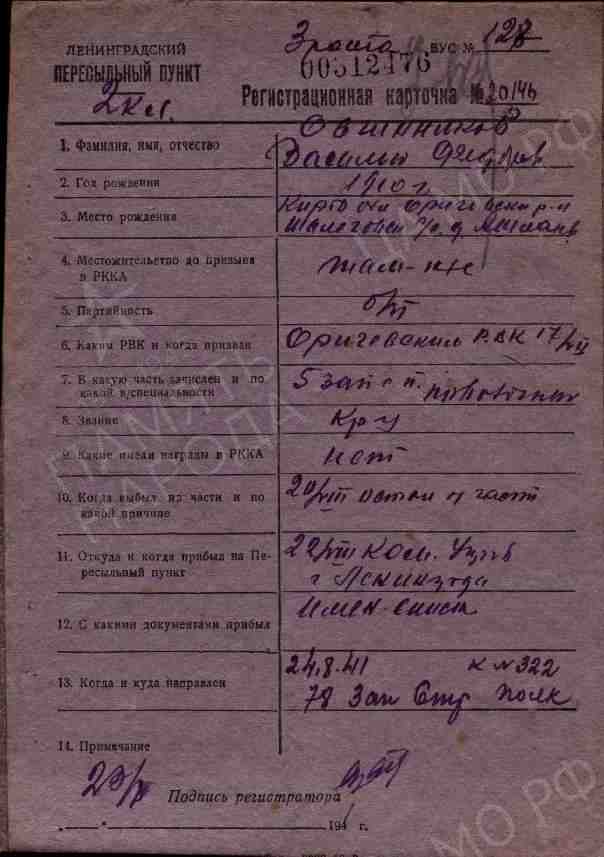 ЛЕНИНГРАДСКИЙ
ПЕРЕСЫЛЬНЫЙ ПУНКТ
2 кл.
3 рота ВУС № 128
00312476
Регистрационная карточка № 20146
1. Фамилия, имя, отчество Овчинников
Василий
2. Год рождения 1910 г
3. Место рождения
4. Местожительство до призыва
в РККА там-же
5. Партийность б/п
6. Каким РВК и когда призван РВК 17/VII
7. В какую часть зачислен и по
какой в/специальности 5 зап с п.
8. Звание кр-ц
9. Какие имели награды в РККА нет
10. Когда выбыл из части и по
какой причине 20/VIII отстал от части
11. Откуда и когда прибыл на Пе-
ресыльный пункт 22/VIII Ком.
г Ленинграда
12. С какими документами прибыл имен-список
13. Когда и куда направлен 24.8.41 к № 322
78 Зап Стр Полк
14. Примечание
Подпись регистратора
„ — " 194 г.
ПАМЯТЬ
НАРОДА
ЦАМО РФ
МО РФ